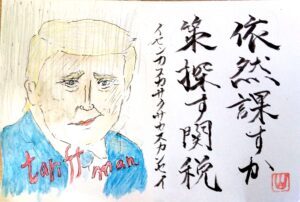 依然課すか
策探す関税
イセンカスカサクサカスカンセイ
tariff man